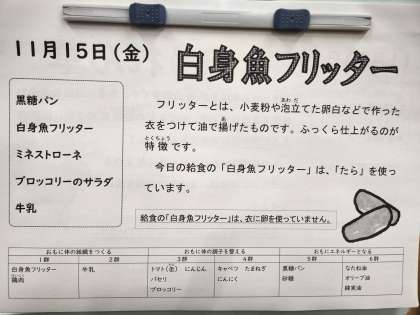 11月15日(金)
白身魚フリッター
黒糖パン
白身魚フリッター
ミネストローネ
ブロッコリーのサラダ
牛乳
フリッターとは、小麦粉や泡立てた卵白などで作った
衣をつけて油で揚げたものです。ふっくら仕上がるのが
特徴です。
今日の給食の「白身魚フリッター」は、「たら」を使っ
ています。
給食の「白身魚フリッター」は、衣に卵を使っていません。
おもに体の組織をつくる おもに体の調子を整える おもにエネルギーとなる
1群 2群 3群 4群 5群 6群
白身魚フリッター 牛乳 トマト(缶) にんじん キャベツ たまねぎ 黒糖パン なたね油
鶏肉 パセリ にんにく 砂糖 オリーブ油
ブロッコリー 綿実油